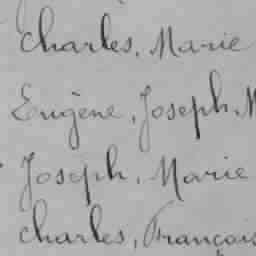 Charles, Marie
Eugène, Joseph, M
Joseph, Marie
Charles, François